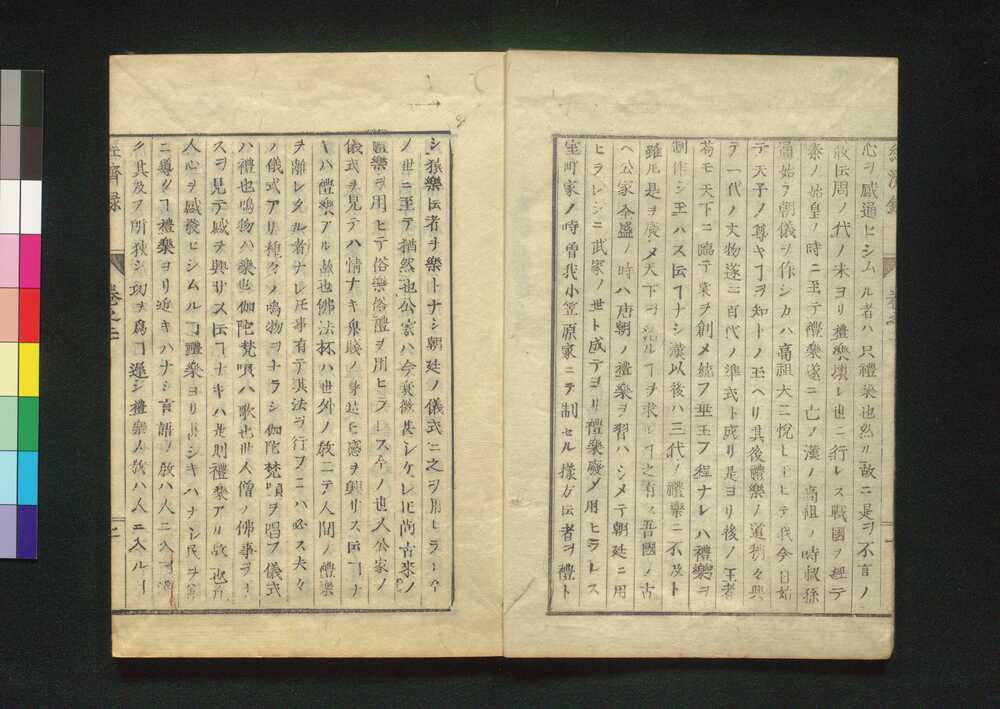 心ヲ感通セシムル者ハ只禮樂也然ル故ニ是ヲ不言ノ
敎伝周ノ代ノ末ヨリ禮樂壊レ世ニ行レス戰國ヲ經テ
秦ノ始皇ノ時ニ至テ禮樂遂ニ亡ノ漢ノ高祖ノ時叔孫
通始テ朝儀ヲ作シカハ高祖大ニ悅ヒ玉ヒテ我今日始
テ天子ノ尊キヿヲ知トノ玉ヘリ其後禮樂ノ道稍々興
テ一代ノ文物遂ニ百代ノ準式ト成リ是ヨリ後ノ王者
苟モ天下ニ臨テ業ヲ創メ統ヲ垂玉フ程ナレハ禮樂ヲ
制作シ玉ハス伝ヿナシ漢以後ハ三代ノ禮樂ニ不及ト
雖凡是ヲ廢メ天下ヲ治ルヿヲ求ルヿ之有ス吾國ノ古
ヘ公家全盛ノ時ハ唐朝ノ禮樂ヲ習ハシメテ朝廷ニ用
ヒラレシニ武家ノ世ト成テヨリ禮樂廢メ用ヒラレス
室町家ノ時曽我小笠原家ニテ制セル樣方伝者ヲ禮ト
經濟錄
卷之二
シ猿樂伝者ヲ樂トナシ朝廷ノ儀式ニ之ヲ用ヒラ
ノ世ニ至テ猶然也公家ハ今衰微甚シケレ𪜈尚古來ノ
禮樂ヲ用ヒテ俗樂俗禮ヲ用ヒラレス今ノ世人公家ノ
儀式ヲ見テハ情ナキ鬼賎ノ身迠ヒ感ヲ興リス伝ヿナ
キハ禮樂アル故也佛法抔ハ世外ノ敎ニテ人間ノ禮樂
ヲ離レタル者ナレ𪜈事有テ其法ヲ行フニハ必ス夫々
ノ儀式アリ種々ノ鳴物ヲナラシ伽陀梵唄ヲ唱フ儀式
ハ禮也鳴物ハ樂也伽陀梵唄ハ歌也世人僧ノ佛事ヲ
スヲ見テ感ヲ興サス伝ヿナキハ是則禮樂アル故也凡
人心ヲ感發セシムルヿ禮樂ヨリ
ニ導クヿ禮樂ヨリ近キハナシ言語ノ敎ハ人ニ入ヿ
ク其及フ所狹シ功ヲ爲ヿ遲シ禮樂ノ敎ハ人ニ入ルヿ